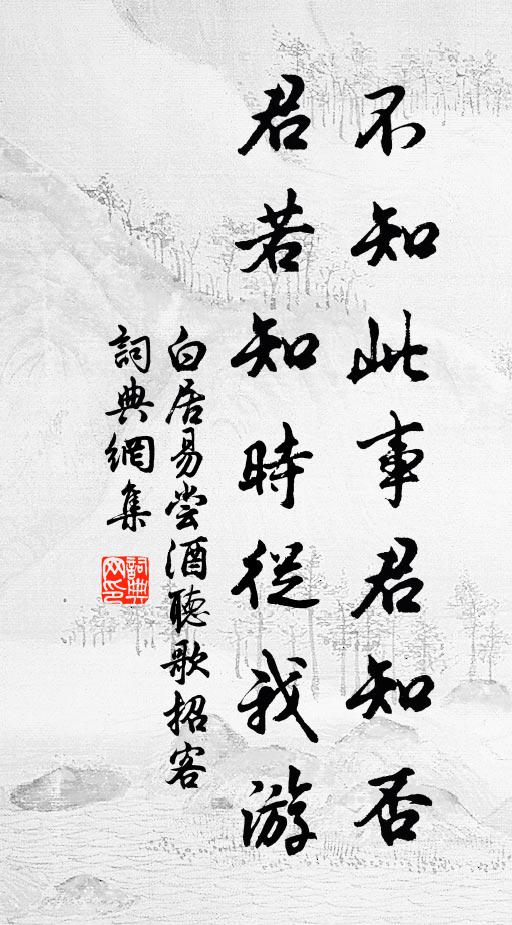 不知此事君知否
君若知時從我游
白居易嘗酒聽歌招客
詞典網集
詞典網印